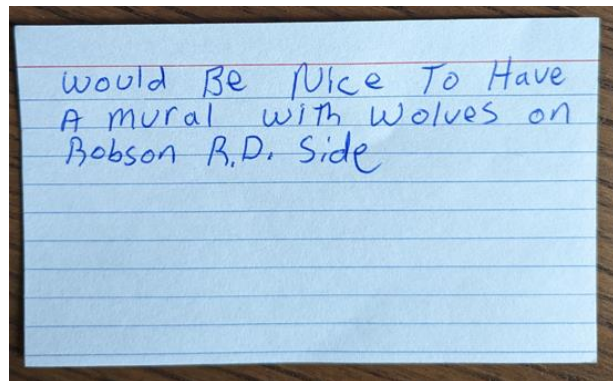 Would Be Nice To Have
A mural with Wolves on
Robson R.D. Side